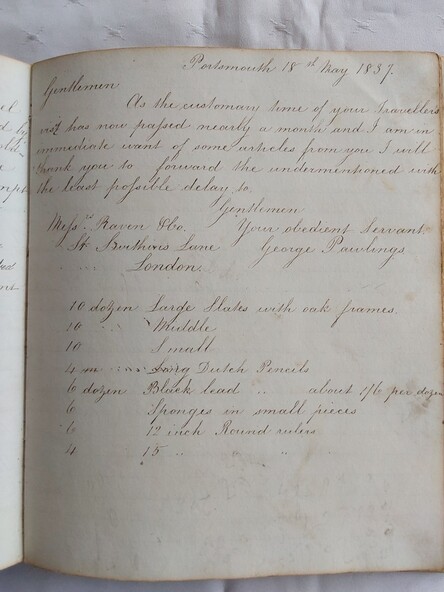 Portsmouth 18th May 1837.
Gentlemen
As the customary time of your Travellers
visit has now passed nearly a month and I am in
immediate want of some articles from you I will
thank you to forward the undermentioned with
the least possible delay to
Gentlemen
Messrs Raven & Co. Your obedient Servant.
St Swithens Lane George Pawlings
London.
10 dozen Large Slates with oak frames.
10 " Middle
10 Small
4 m Long Dutch Pencils
6 dozen Black lead " about 1/6 per dozen
6 Sponges in small pieces
6 12 inch Round rulers
4 15 " " "